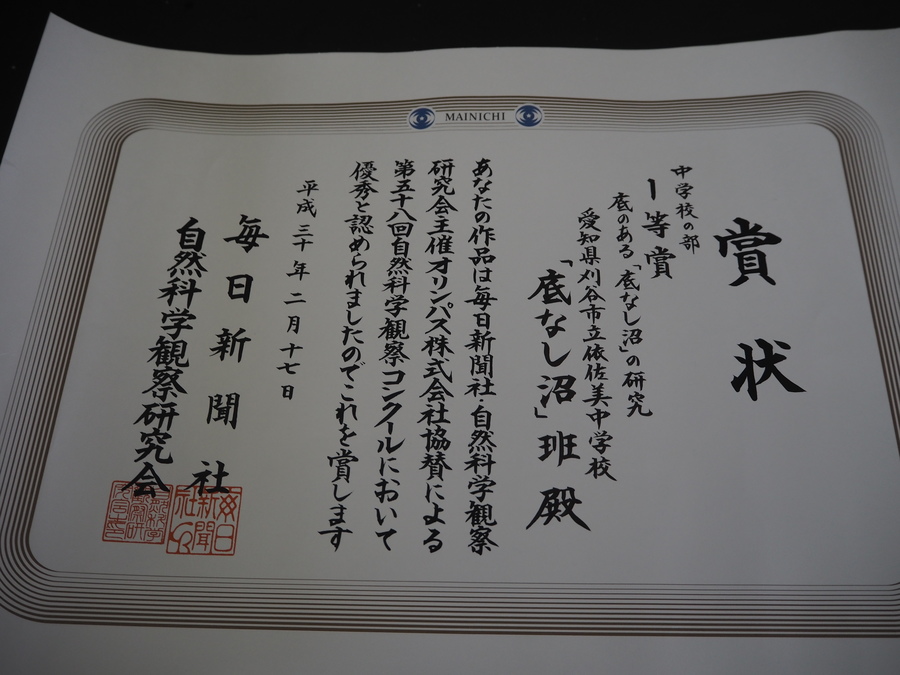 MAINICHI
賞状
中学校の部
1等賞
底のある「底なし沼」の研究
愛知県刈谷市立依佐美中学校
「底なし沼」班殿
あなたの作品は毎日新聞社 自然科学観察
研究会主催オリンパス株式会社協賛による
第五十八回自然科学観察コンクールにおいて
優秀と認められましたのでこれを賞します
平成三十年二月十七日
毎日新聞社
自然科学観察研究会
毎日
新聞
社